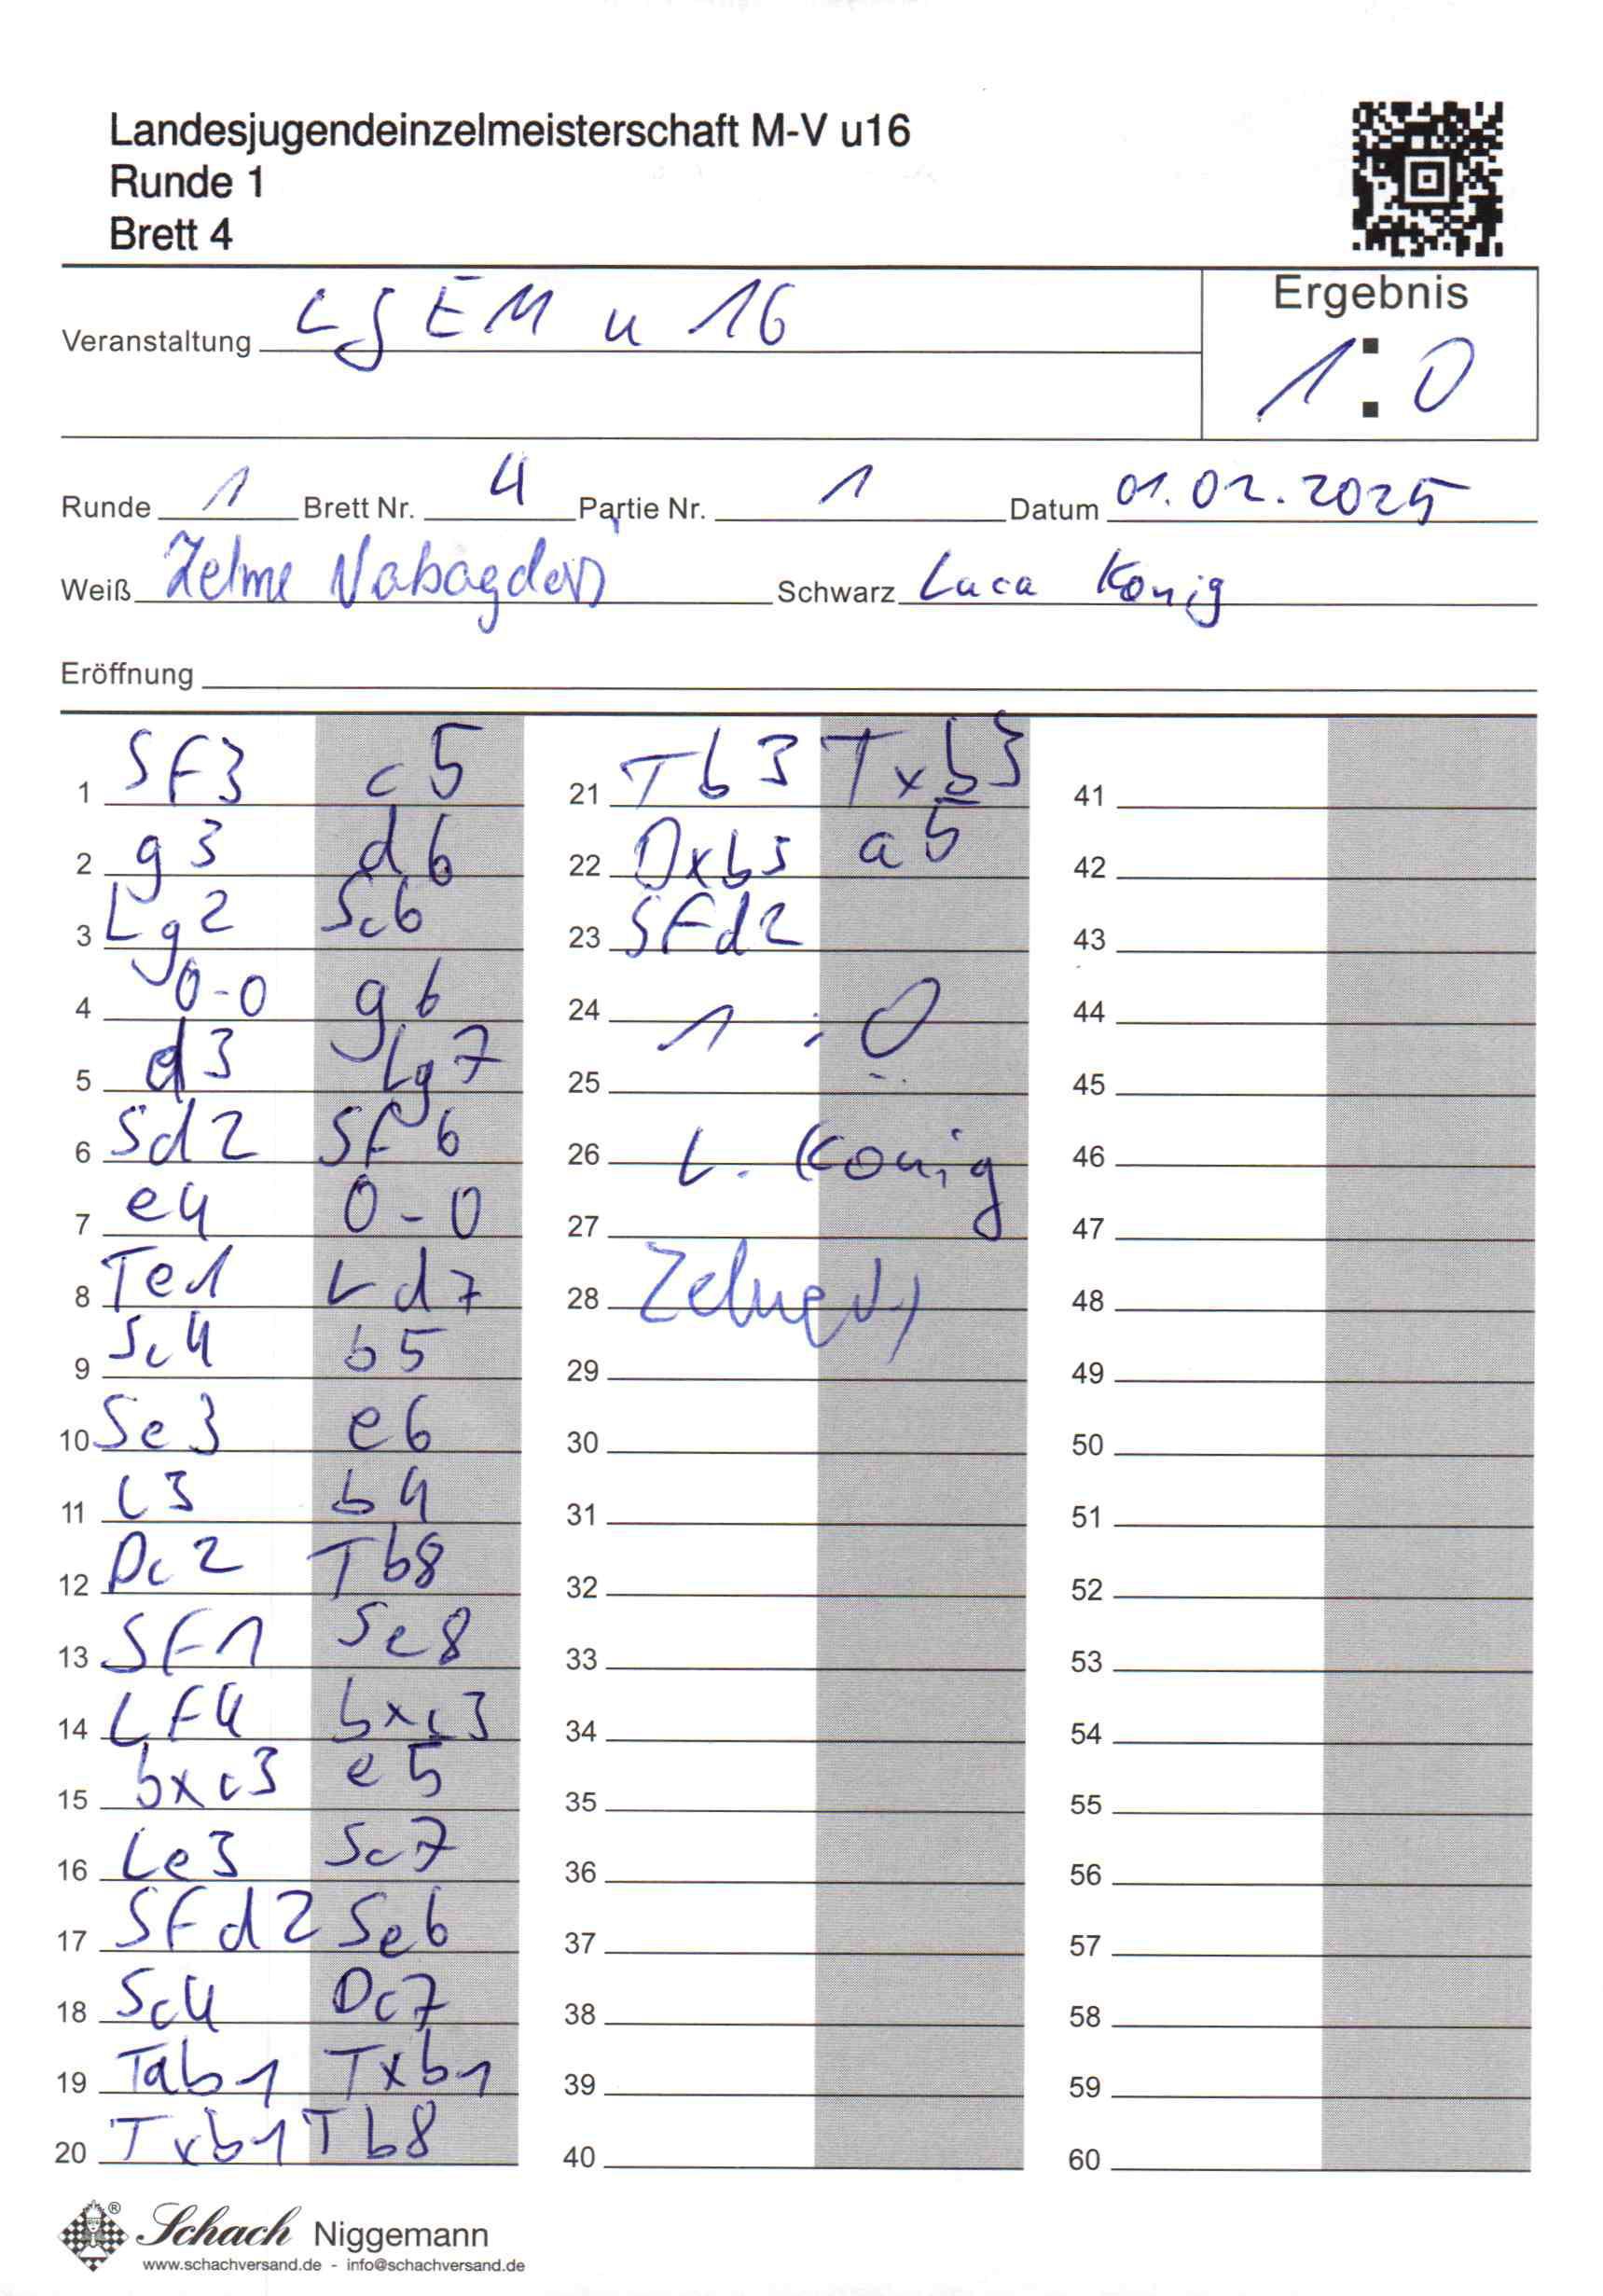 Landesjugendeinzelmeisterschaft M-V u16
Runde 1
Brett 4
Ergebnis
Veranstaltung LJEM u 16
1:0
Runde 1 Brett Nr. 4 Partie Nr. 1 Datum 01.02.2025
Weiß Zelme Schwarz Luca König
Eröffnung
1 SF3 c5
2 g3 d6
3 Lg2 Sc6
4 0-0 g6
5 d3 Lg7
6 Sd2 SF6
7 e4 0-0
8 Te1 Ld7
9 Sc4 b5
10 Se3 e6
11 c3 b4
12 Dc2 Tb8
13 SF1 Se8
14 LF4 bxc3
15 bxc3 e5
16 Le3 Sc7
17 SFd2 Se6
18 Sc4 Dc7
19 Tab1 Txb1
20 Txb1 Tb8
21 Tb3 Txb3
22 Dxb3 a5
23 SFd2
24 1:0
25
26 L. König
27
28
29
30
31
32
33
34
35
36
37
38
39
40
41
42
43
44
45
46
47
48
49
50
51
52
53
54
55
56
57
58
59
60
® Schach Niggemann
www.schachversand.de - info@schachversand.de